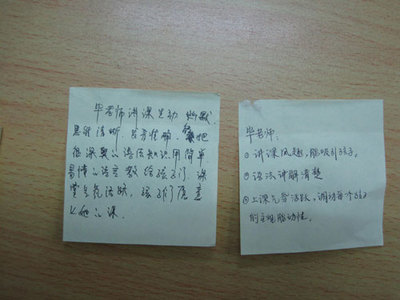 毕老师讲课生动 幽默,
思路清晰 发音准确, 能把
很深奥的语法知识用简单
易懂的语言教给孩子们 课
堂气氛活跃, 孩子们愿意
上她的课.
毕老师:
① 讲课风趣, 能吸引孩子,
② 语法讲解清楚
③ 上课气氛活跃, 调动每个孩子
的主观能动性.